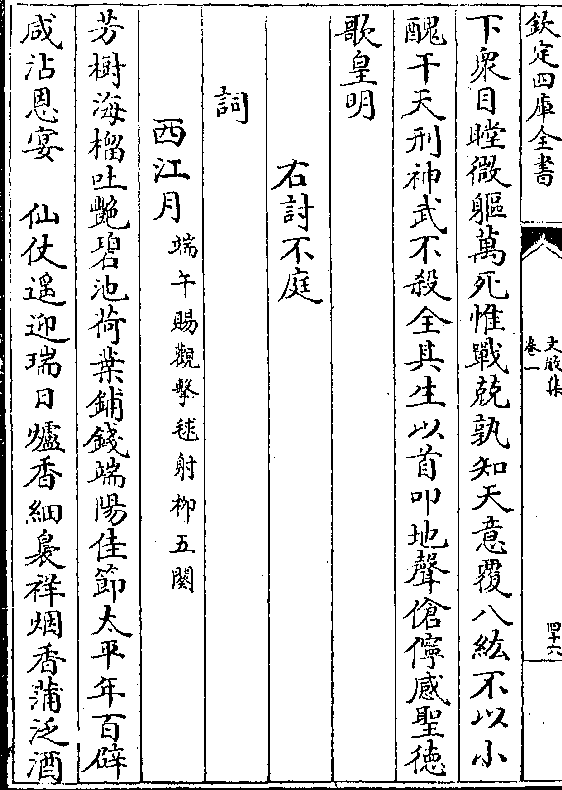 欽定四庫全書
文敏集
卷一
四十六
下衆目瞠微軀萬死惟戰兢孰知天意覆八紘不以小
醜干天刑神武不殺全其生以首叩地聲傖儜感聖徳
歌皇明
右討不庭
詞
西江月端午賜觀擊毬射栁五闋
芳樹海榴吐艶碧池荷葉鋪錢端陽佳節太平年百辟
咸沾恩宴　仙仗遥迎瑞日爐香細裊祥烟香蒲泛酒